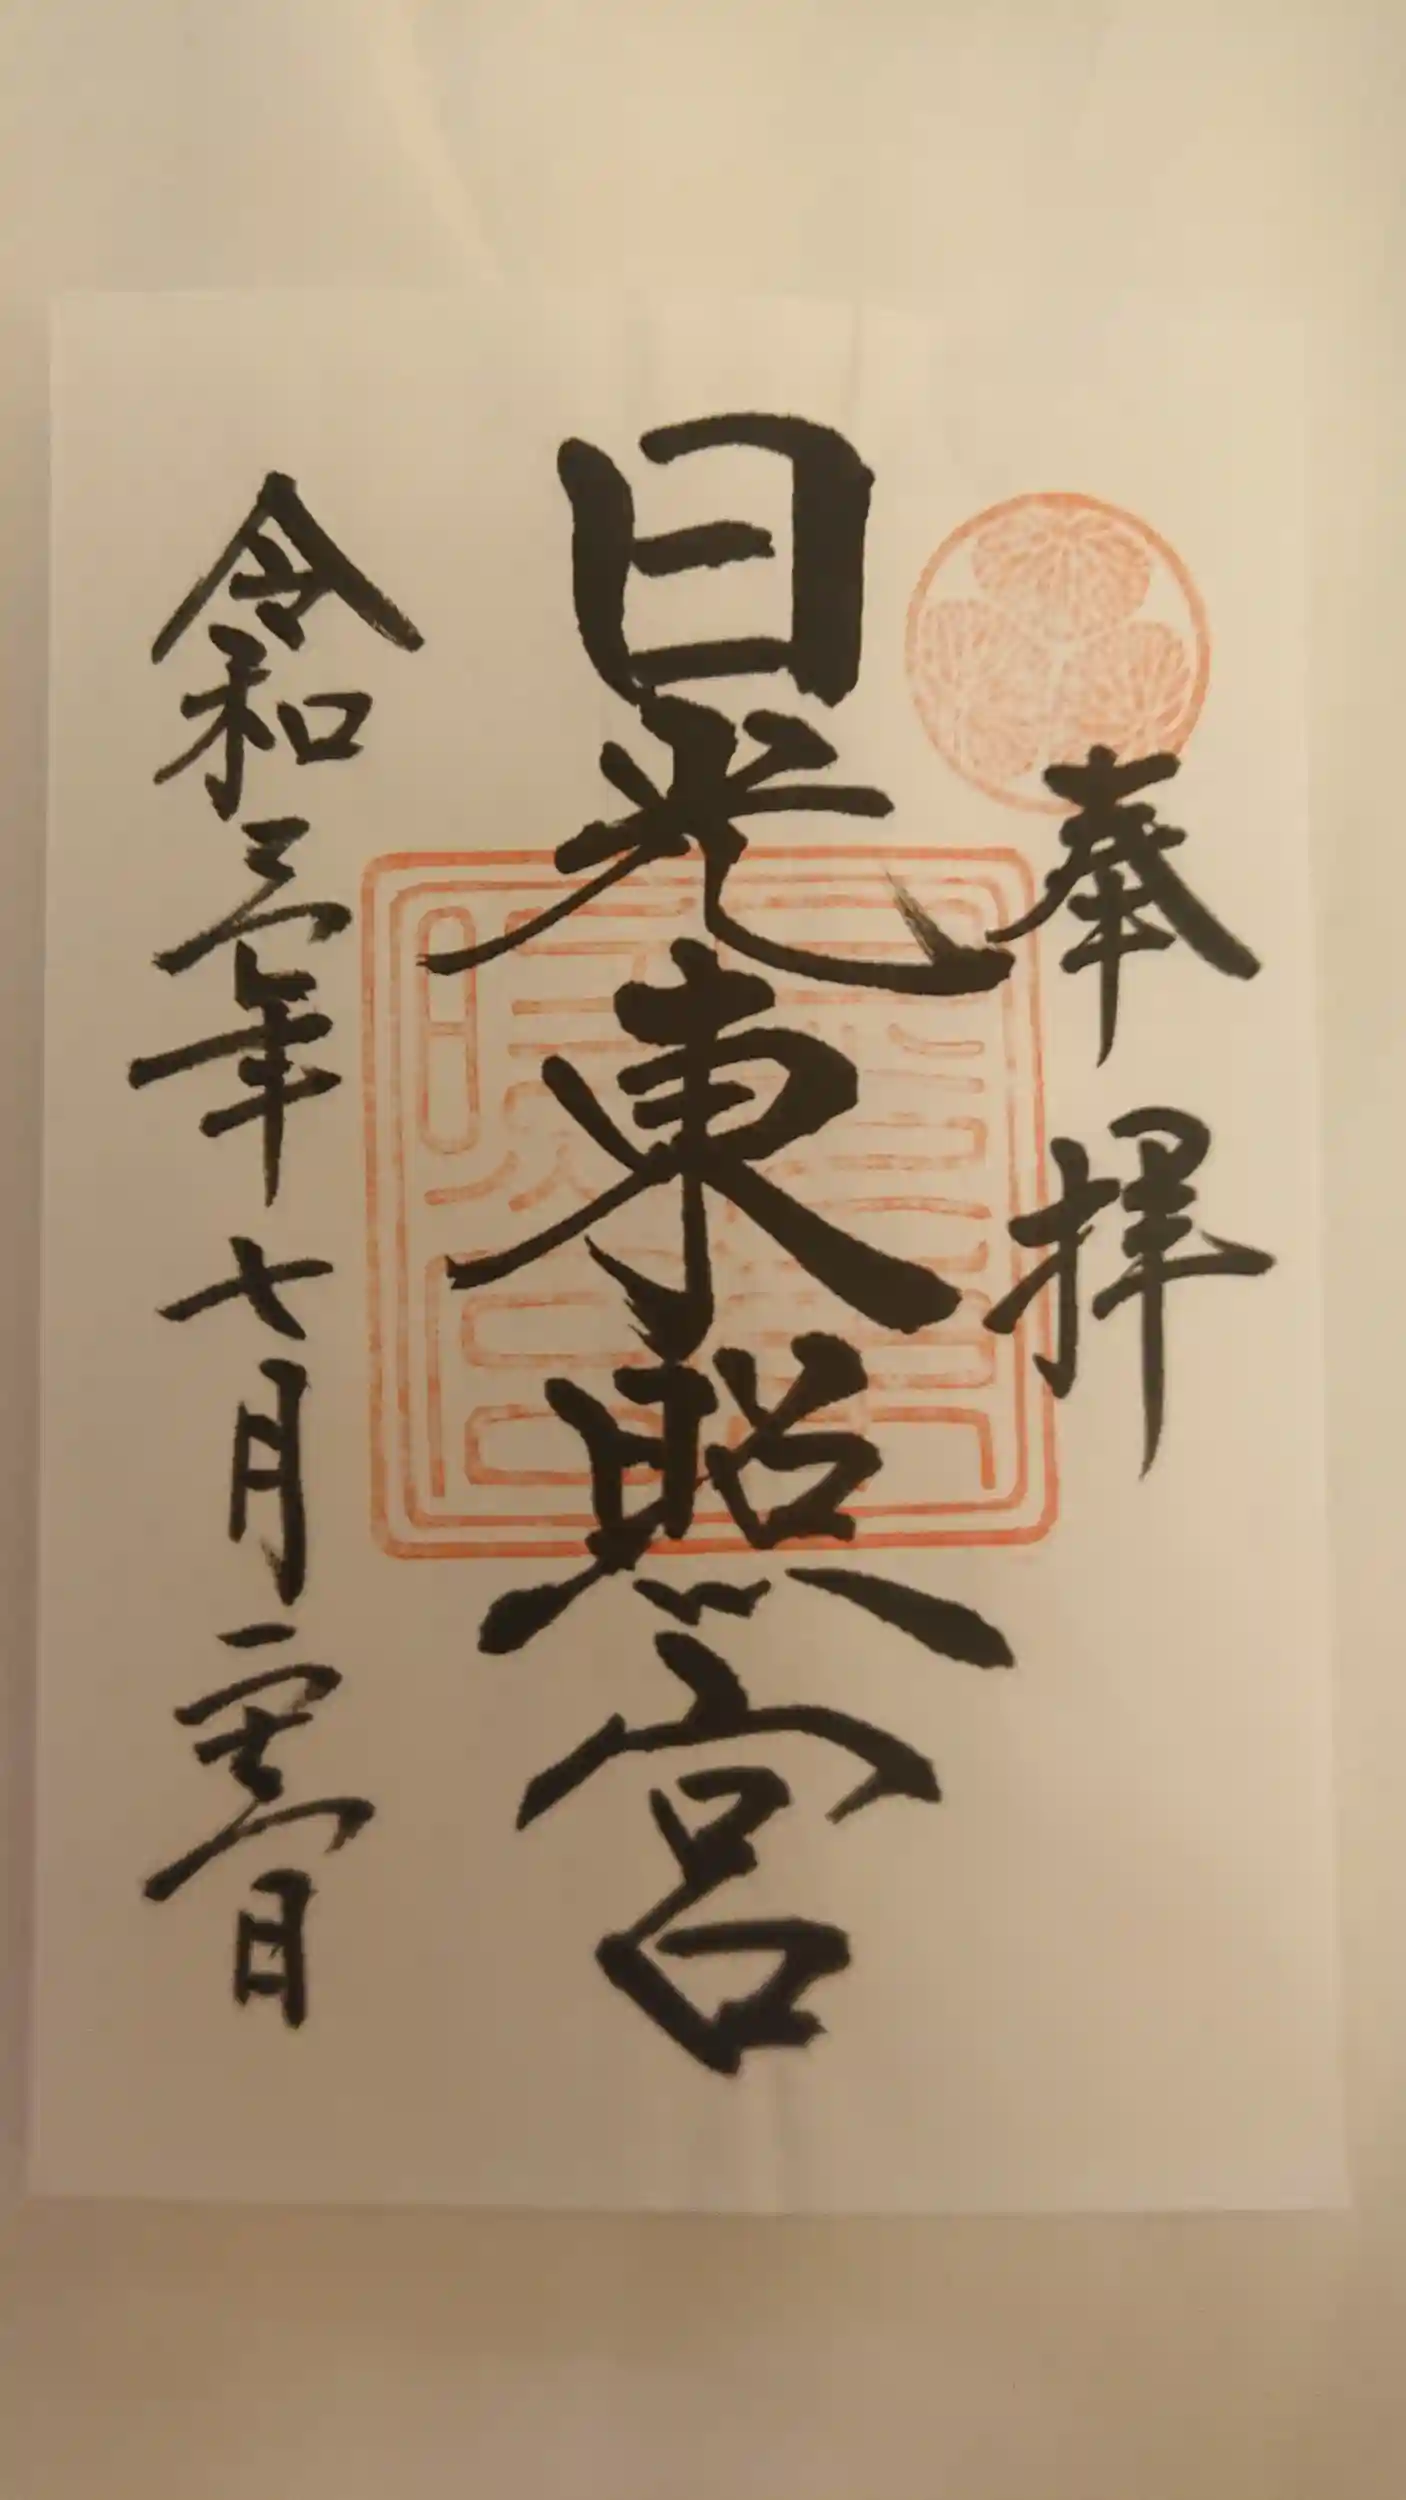 奉拝
日光東照宮
令和三年七月二十二日